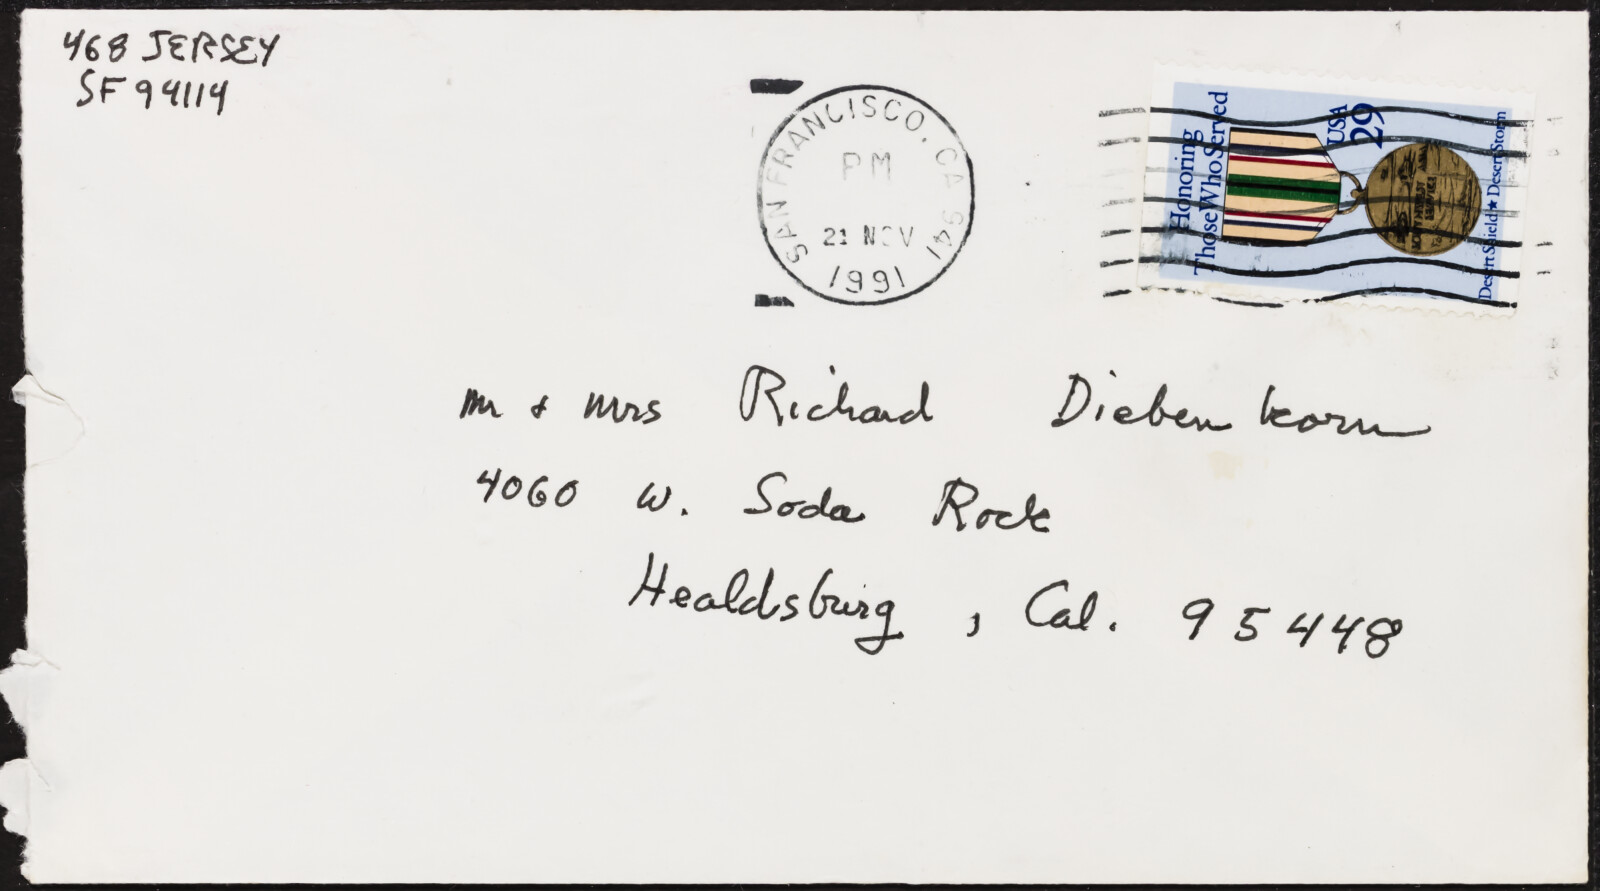 468 JERSEY
SF 94114
SAN FRANCISCO, CA 941
PM
21 NOV
1991
Honoring
Those Who Served
USA
29
Desert Shield ★ Desert Storm
Mr + Mrs Richard Diebenkorn
4060 W. Soda Rock
Healdsburg, Cal. 95448